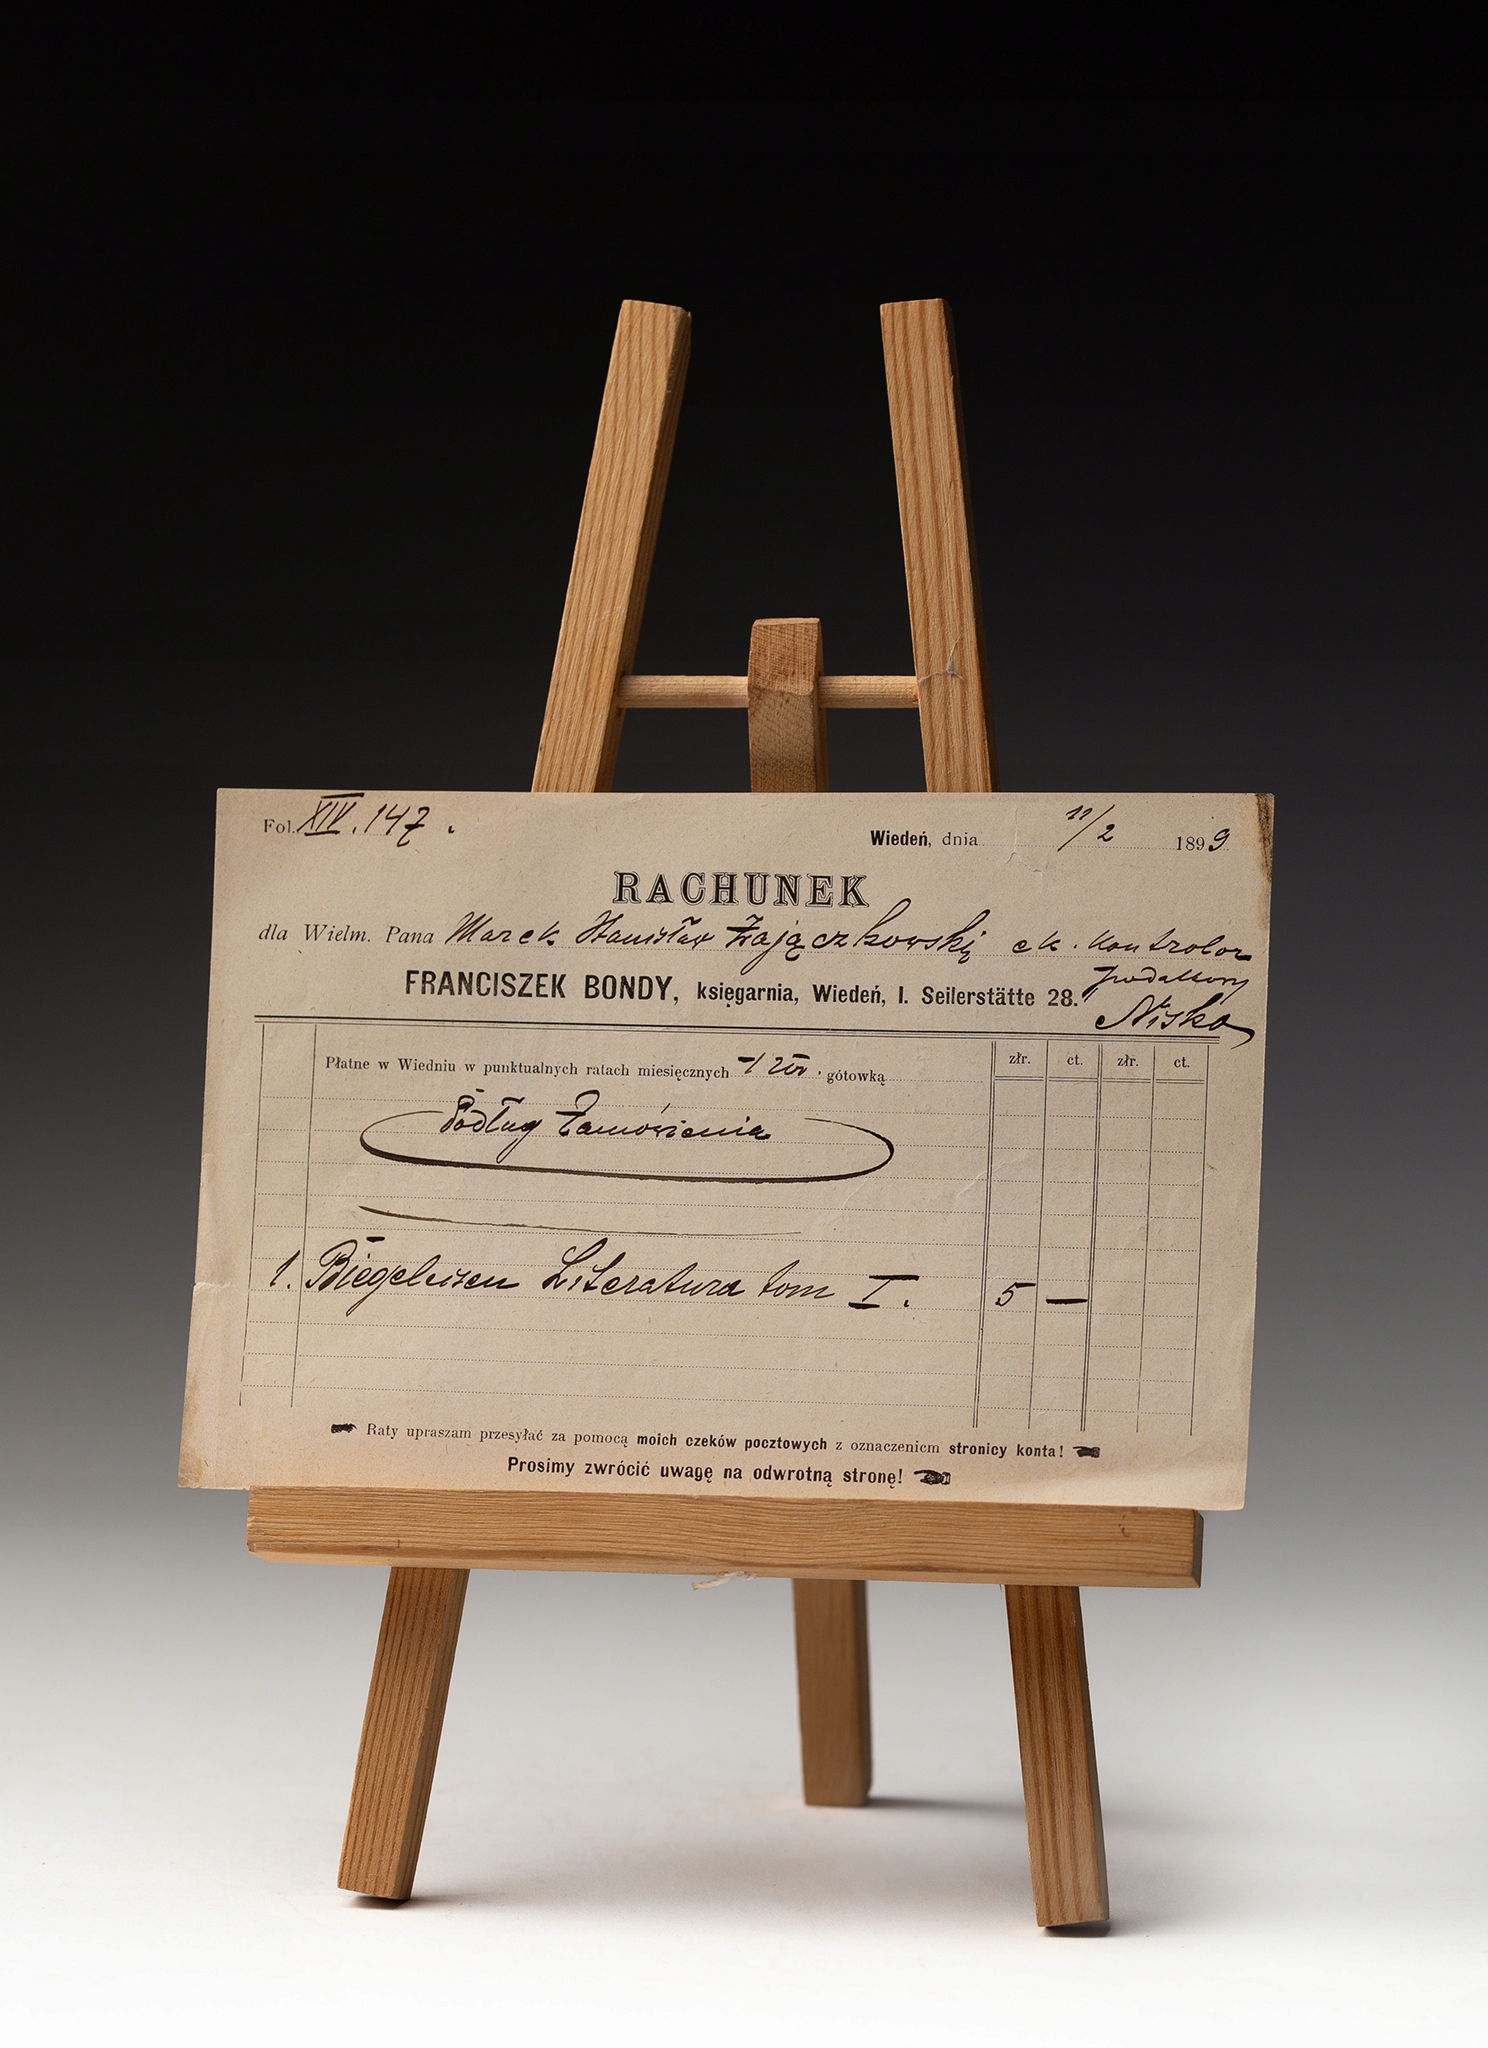 Fol. XIV. 147.
Wiedeń, dnia 11/2 1899
RACHUNEK
dla Wielm. Pana Marek Stanisław Zajączkowski ck. Kontrolor
podatkowy
FRANCISZEK BONDY, księgarnia, Wiedeń, I. Seilerstätte 28.
Nisko
Płatne w Wiedniu w punktualnych ratach miesięcznych gótowką
złr. ct. złr. ct.
Podług Zamówienia
1. Biegeleisen Literatura tom I. 5 —
Raty upraszam przesyłać za pomocą moich czeków pocztowych z oznaczeniem stronicy konta!
Prosimy zwrócić uwagę na odwrotną stronę!